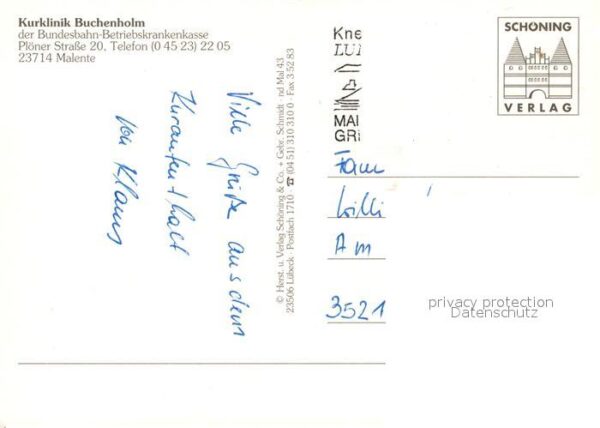 Kurklinik Buchenholm
der Bundesbahn-Betriebskrankenkasse
Plöner Straße 20, Telefon (0 45 23) 22 05
23714 Malente
Viele Grüße aus dem
Kuraufenthalt
von Klaus
© Herst. u. Verlag Schöning & Co. + Gebr. Schmidt nd Mal 43
23506 Lübeck · Postfach 1710 · ☎ (04 51) 310 310 0 · Fax 3 52 83
Kne
LUI
MAI
GRI
SCHÖNING
VERLAG
Fam
Willi
Am
3521
privacy protection
Datenschutz